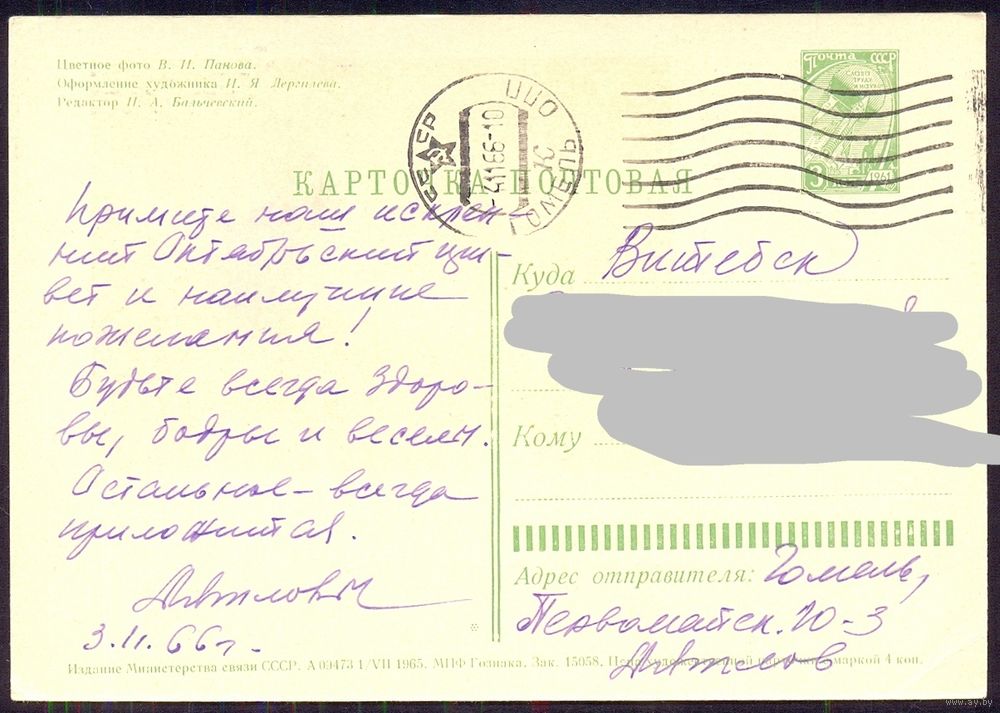 Цветное фото В. И. Панова.
Оформление художника И. Я. Дергилева.
Редактор Н. А. Бальчевский.
Почта СССР
3
1961
БЕЛССР
4 11 66-10
ГОМЕЛЬ
КАРТОЧКА ПОЧТОВАЯ
Примите наш искрен-
ний Октябрьский при-
вет и наилучшие
пожелания!
Будьте всегда здоро-
вы, бодры и веселы.
Остальное – всегда
приложится.
3.11.66 г.
Куда Витебск
Кому
Адрес отправителя: Гомель,
Первомайск. 10-3
Издание Министерства связи СССР. А 09473 1/VII 1965. МПФ Гознака. Зак. 15058. Цена художественной карточки с маркой 4 коп.
www.ay.by